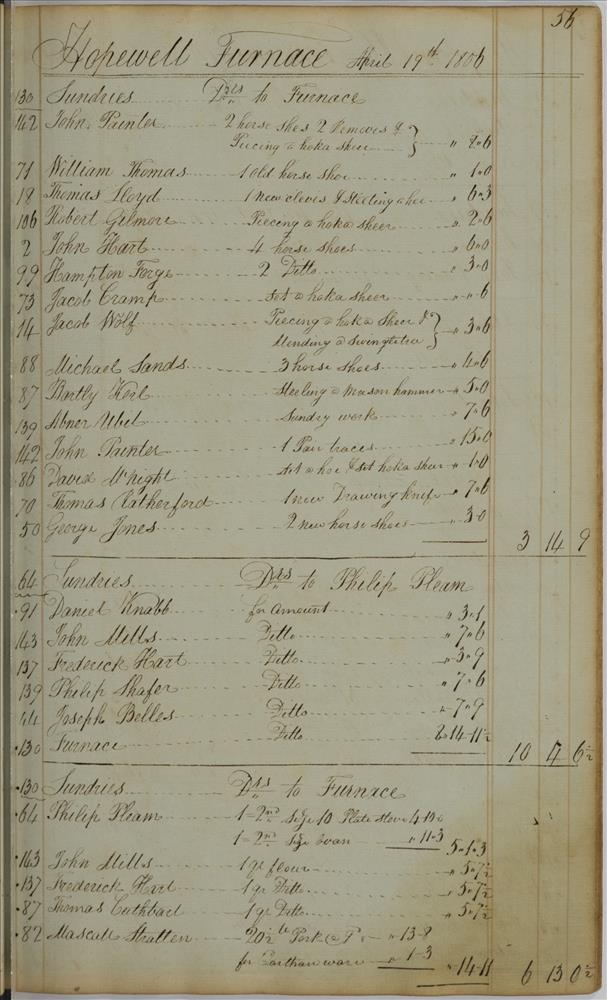 56
Hopewell Furnace April 19th 1806
130 Sundries Drs to Furnace
142 John Painter 2 horse shes 2 Removes &
Piecing a hoka sheer } " 8 " 6
71 William Thomas 1 old horse shoe " 1 " 0
18 Thomas Lloyd 1 New cleves & Steeling a hoe " 6 " 3
106 Robert Gilmore Piecing a hoka sheer " 2 " 6
2 John Hart 4 horse shoes " 6 " 0
99 Hampton Forge 2 Ditto " 3 " 0
73 Jacob Cramp set a hoka sheer " " " 6
14 Jacob Wolf Piecing a hoka Sheer &
Mending a Swingletree } " 3 " 6
88 Michael Sands 3 horse shoes " 4 " 6
87 Bartly Kerl Steeling a Mason hammer " 5 " 0
139 Abner Ubil Sundry work " 7 " 6
142 John Painter 1 Pair traces " 15 " 0
86 David Wright set a hoe & set hoka sheer " 1 " 0
70 Thomas Rutherford 1 new Drawing knife " 7 " 6
50 George Jones 2 new horse shoes " 3 " 0
3 14 9
64 Sundries Drs to Philip Pleam
91 Daniel Knabb for Amount " 3 " 1
143 John Mills Ditto " 7 " 6
137 Frederick Hart Ditto " 3 " 9
139 Philip Shafer Ditto " 7 " 6
44 Joseph Belles Ditto " 7 " 9
130 Furnace Ditto 8 " 14 " 11 1/2
10 4 6 1/2
130 Sundries Drs to Furnace
64 Philip Pleam 1 = 2nd Size 10 Plate Stove 4 " 10 " 0
1 = 2nd Size Ovan " 11 " 3 5 " 1 " 3
143 John Mills 1 qr flour " 5 " 7 1/2
137 Frederick Hart 1 qr Ditto " 5 " 7 1/2
87 Thomas Cuthbart 1 qr Ditto " 5 " 7 1/2
82 Mascall Stratten 20 1/2 lb Pork @ " 13 " 8
for Earthan ware " 1 " 3 " 14 " 11
6 13 0 1/2